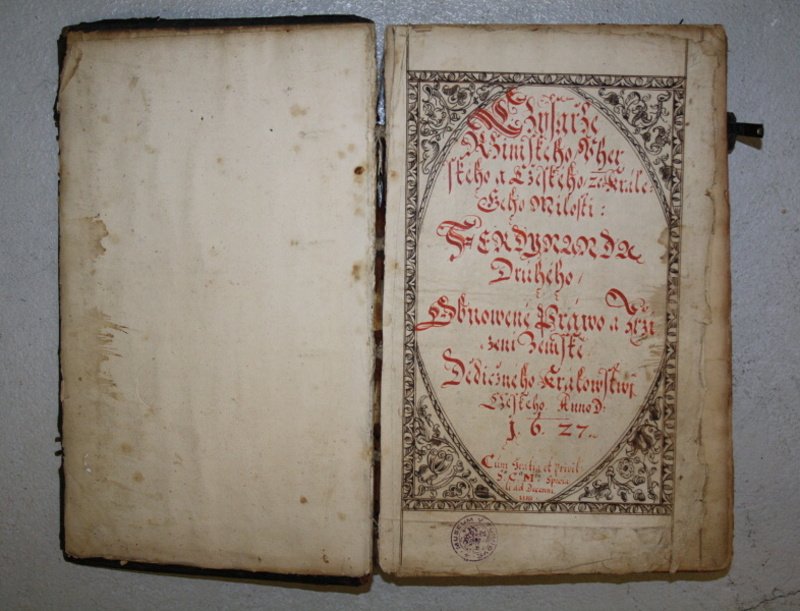 Cžysaře
Ržimského, Vher
ského a Cžeského, ꝛc. Krále
Geho Milosti:
FERDYNANDA
Druhého,
Obnowené Práwo a Zři
zení Zemské
Dědičného Králowstwí
Cžeského. Anno D:
1. 6. 27.
Cum Gratia et Privil.
S. C. M. Specia
li ad Decenni
um.
MUSEUM